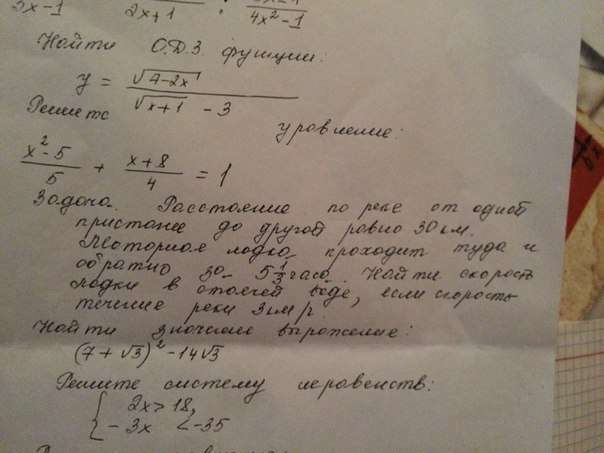 2x+1 : 4x²-1
Найти О.Д.З функции:
y = √4-2x / √x+1 - 3
Решите уровнение:
x²-5 / 5 + x+8 / 4 = 1
Задача. Расстояние по реке от одной
пристане до другой равно 30 км.
Моторная лодка проходит туда и
обратно за 5 1/3 часа. Найти скорость
лодки в стоячей воде, если скорость
течение реки 3км/ч.
Найти значение выражение:
(7 + √3)² - 14√3
Решите систему неравенств:
{ 2x > 18,
{ -3x < -35